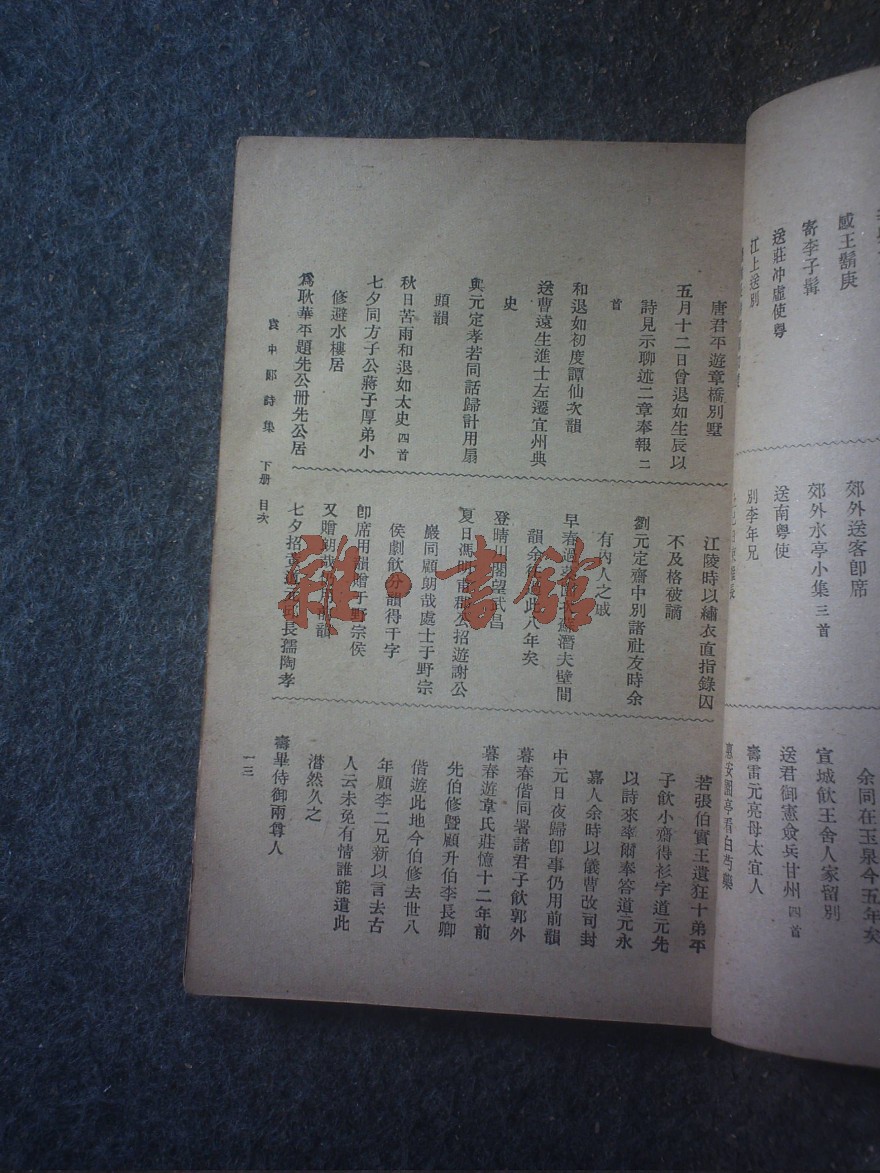 感王鬍庚
寄李子髯
送莊冲虛使粵
江上送別
郊外送客卽席
郊外水亭小集三首
送南粵使
別李年兄
余同在玉泉今五年矣
宣城飮王舍人家留別
送君御憲僉兵甘州四首
壽雷元亮母太宜人
惠安園亭看白芍藥
唐君平遊章橋別墅
五月十二日曾退如生辰以
詩見示聊述二章奉報二
首
和退如初度譚仙次韻
送曹遠生進士左遷宜州典
史
與元定孝若同話歸計用扇
頭韻
秋日苦雨和退如太史四首
七夕同方子公蔣子厚弟小
修避水樓居
爲耿華平題先公冊先公居
江陵時以繡衣直指錄囚
不及格被謫
劉元定齋中別諸社友時余
有內人之戚
早春過 夫壁間
韻余 此八年矣
登晴川閣望武昌
夏日馮 郡公招遊謝公
巖同顧朗哉處士于野宗
侯劇飮分韻得干字
卽席用韻贈于野宗侯
又贈朗哉 韻
七夕招 長孺陶孝
若張伯實王遺狂十弟平
子飮小齋得衫字道元先
以詩來率爾奉答道元永
嘉人余時以儀曹改司封
中元日夜歸卽事仍用前韻
暮春偕同署諸君子飮郭外
暮春遊韋氏莊憶十二年前
先伯修暨顧升伯李長卿
偕遊此地今伯修去世八
年顧李二兄新以言去古
人云未免有情誰能遣此
潸然久之
壽畢侍御兩尊人
袁中郞詩集 下册 目次
一三
雜·書館